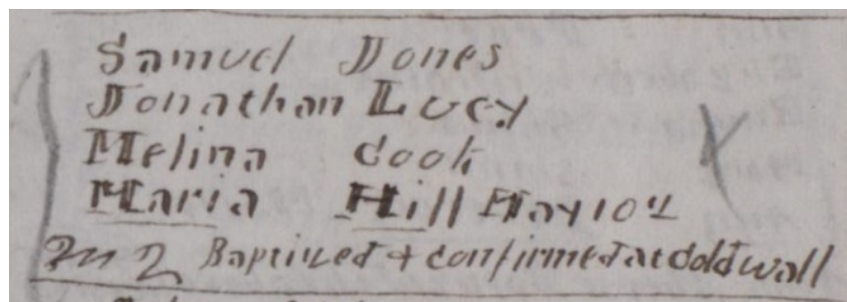 Samuel Jones
Jonathan Lucy
Melina Cook
Maria Hill May 10th
m 2 Baptised & confirmed at Coldwall